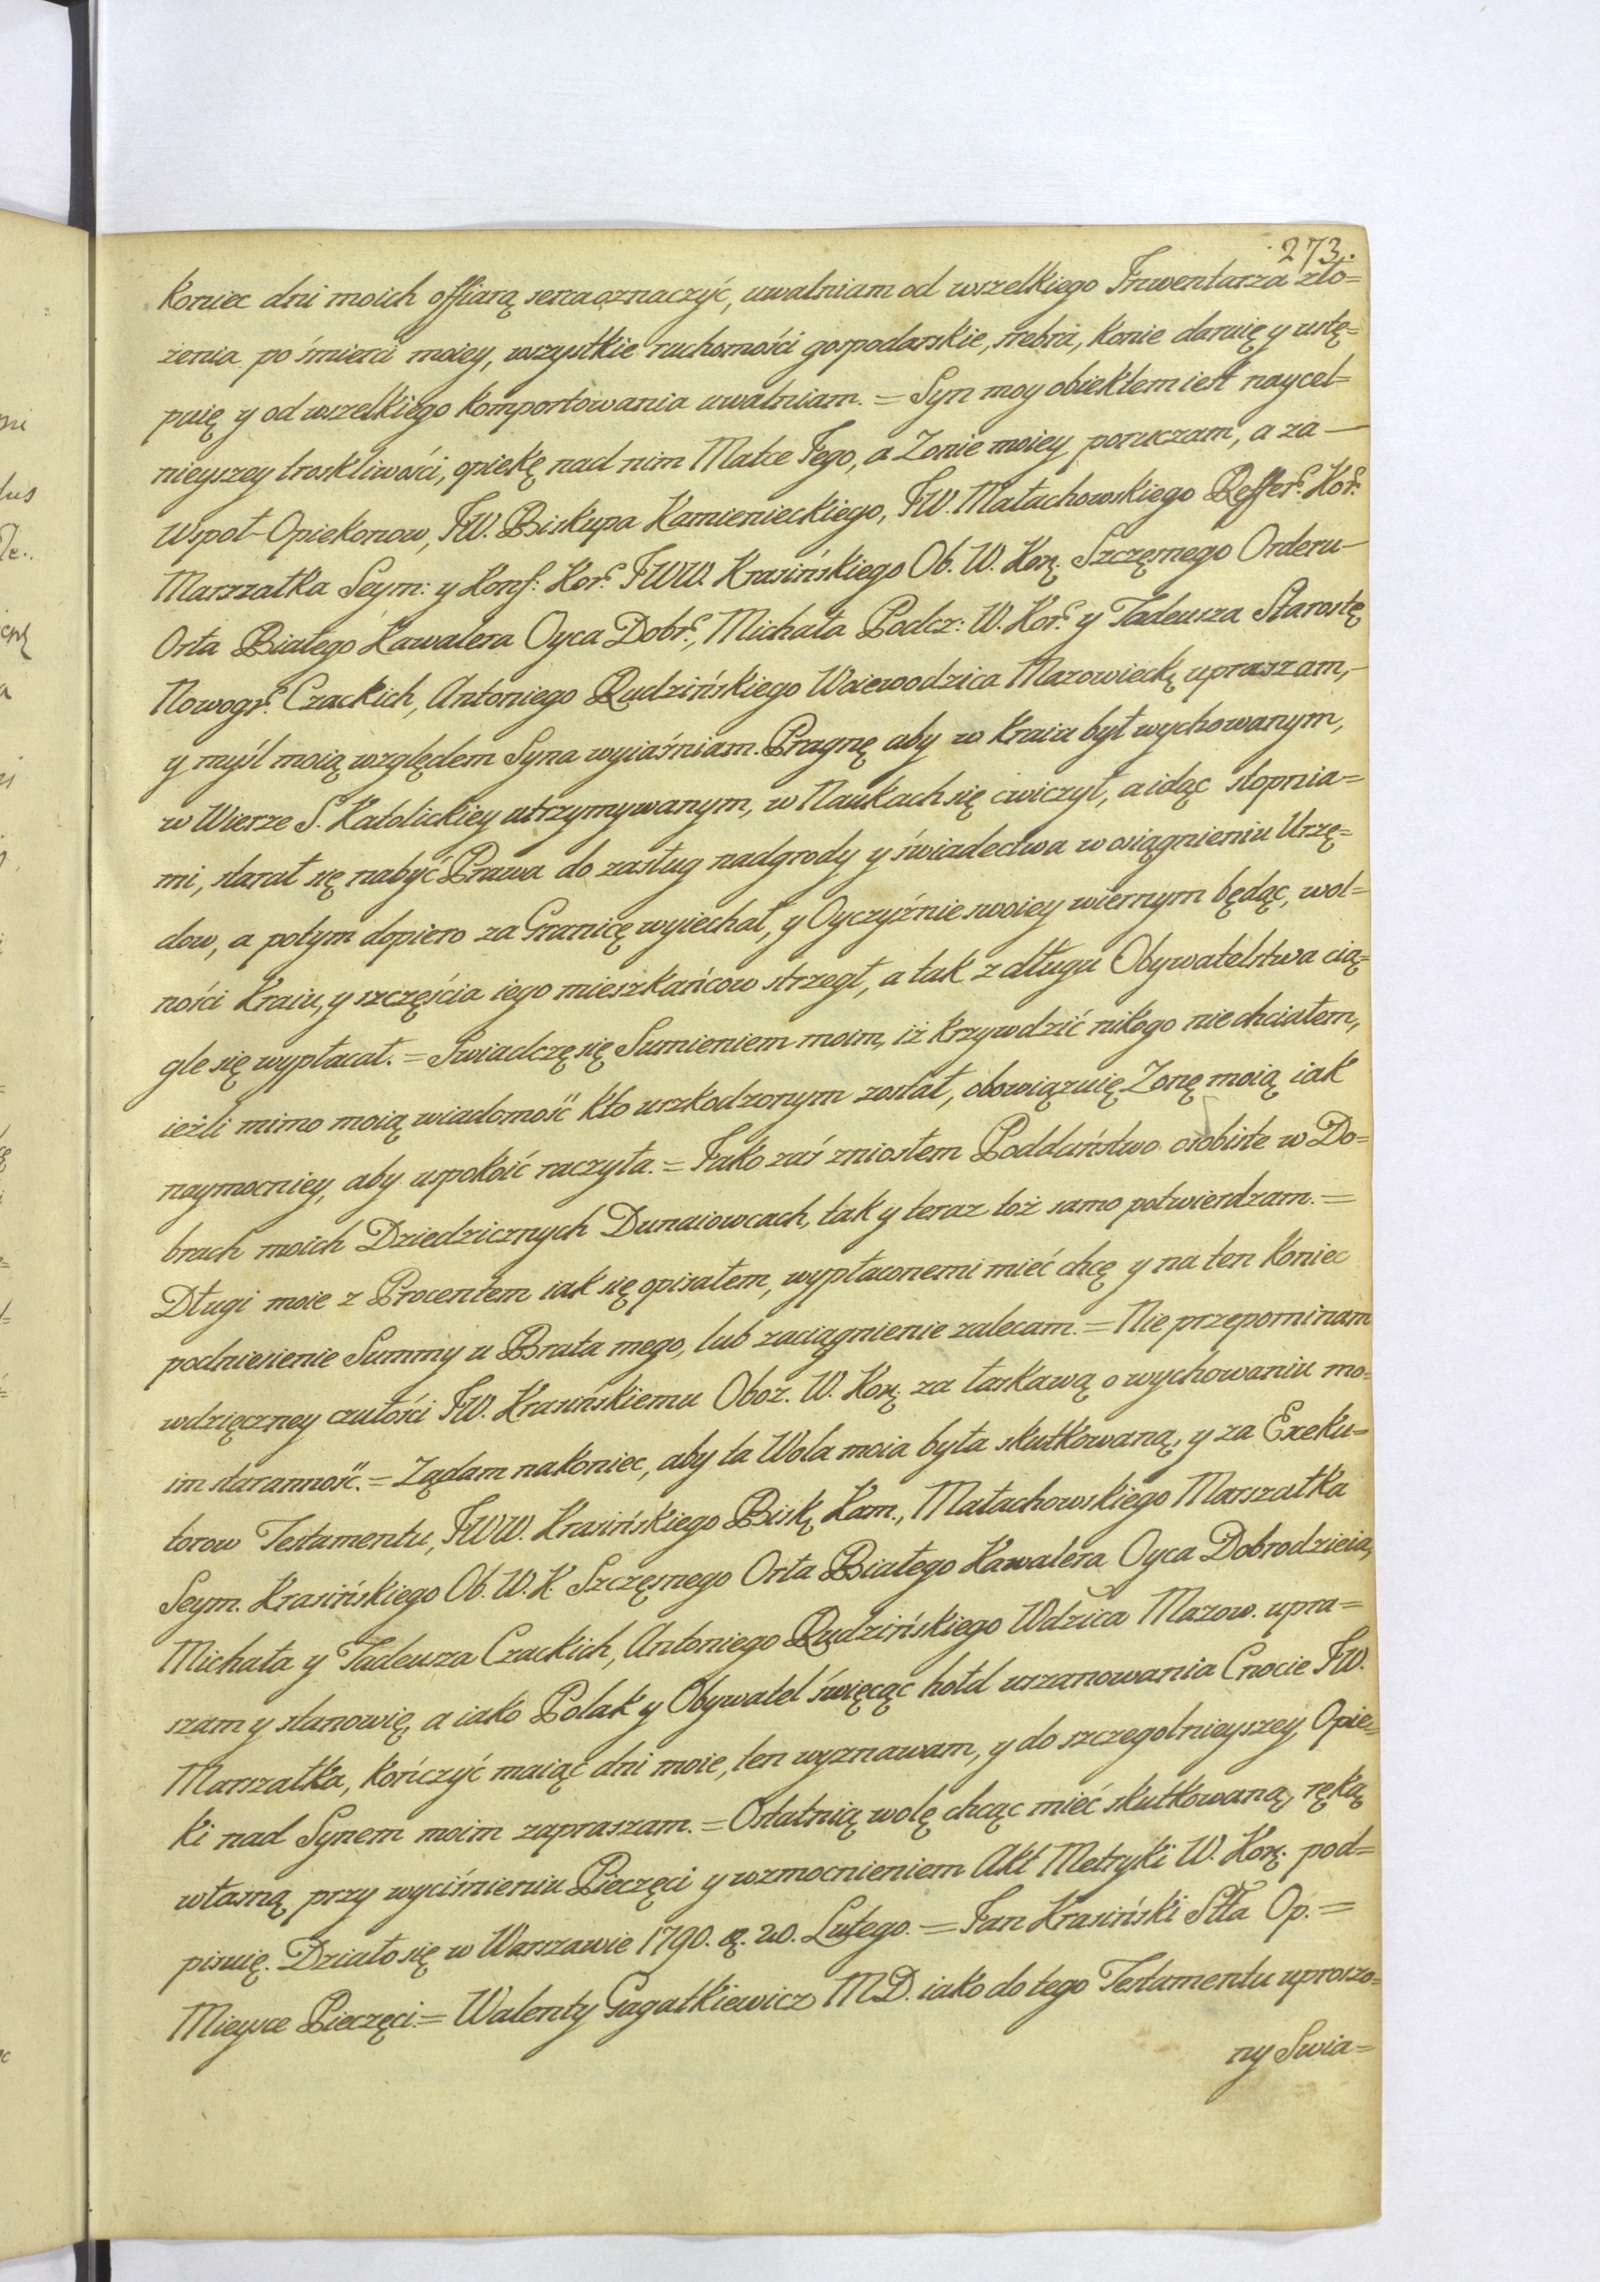 273.
koniec dni moich offiarą serca oznaczyć, uwalniam od wszelkiego Inwentarza zło=
żenia po śmierci moiey, wszystkie ruchomości gospodarskie, srebra, konie daruię y ustę=
puię y od wszelkiego komportowania uwalniam. = Syn moy obiektem iest naycel=
nieyszey troskliwości, opiekę nad nim Matce Jego, a Zonie moiey poruczam, a za —
Wspoł-Opiekonow, JW. Biskupa Kamienieckiego, JW. Małachowskiego Reffer: Kor:
Marszałka Seym: y Konf: Kor: JWW. Krasińskiego Ob. W. Kor: Szczęsnego Orderu —
Orła Białego Kawalera Oyca Dobr:, Michała Podcz: W. Kor: y Tadeusza Starostę
Nowogr: Czackich, Antoniego Rudzińskiego Woiewodzica Mazowieck: upraszam, —
y myśl moią względem Syna wyiaśniam. Pragnę aby w Kraiu był wychowanym,
w Wierze S. Katolickiey utrzymywanym, w Naukach się cwiczył, a idąc stopnia=
mi, starał się nabyć Prawa do zasług nadgrody y świadectwa w osiągnieniu Urzę=
dow, a potym dopiero za Granicę wyiechał, y Oyczyźnie swoiey wiernym będąc, wol=
ności Kraiu, y szczęścia iego mieszkańcow strzegł, a tak z długu Obywatelstwa cią=
gle się wypłacał. = Swiadczę się Sumieniem moim, iż krzywdzić nikogo nie chciałem,
ieżli mimo moią wiadomość kto uszkodzonym został, obowiązuię Zonę moią iak
naymocniey, aby uspokoić raczyła. = Jako zaś zniosłem Poddaństwo osobiste w Do=
brach moich Dziedzicznych Dunaiowcach, tak y teraz toż samo potwierdzam. =
Długi moie z Procentem iak się opisałem, wypłaconemi mieć chcę y na ten koniec
podniesienie Summy u Brata mego, lub zaciągnienie zalecam. = Nie przepominam
wdzięczney czułości JW. Krasińskiemu Oboz. W. Kor: za łaskawą o wychowaniu mo=
im staranność. = Żądam nakoniec, aby ta Wola moia była skutkowaną, y za Exeku=
torow Testamentu, JWW. Krasińskiego Bisk: Kam., Małachowskiego Marszałka
Seym. Krasińskiego Ob. W. K. Szczęsnego Orła Białego Kawalera Oyca Dobrodzieia,
Michała y Tadeusza Czackich, Antoniego Rudzińskiego Wdzica Mazow. upra=
szam y stanowię, a iako Polak y Obywatel święcąc hołd uszanowania Cnocie JW.
Marszałka, kończyć maiąc dni moie, ten wyznawam, y do szczegolnieyszey Opie=
ki nad Synem moim zapraszam. = Ostatnią wolę chcąc mieć skutkowaną, ręką
własną przy wyciśnieniu Pieczęci y wzmocnieniem Akt Metryki W. Kor: pod=
pisuię. Działo się w Warszawie 1790. R. 20. Lutego. = Jan Krasiński Stta Op. =
Mieysce Pieczęci. = Walenty Gagatkiewicz MD. iako do tego Testamentu uproszo=
ny Swia=